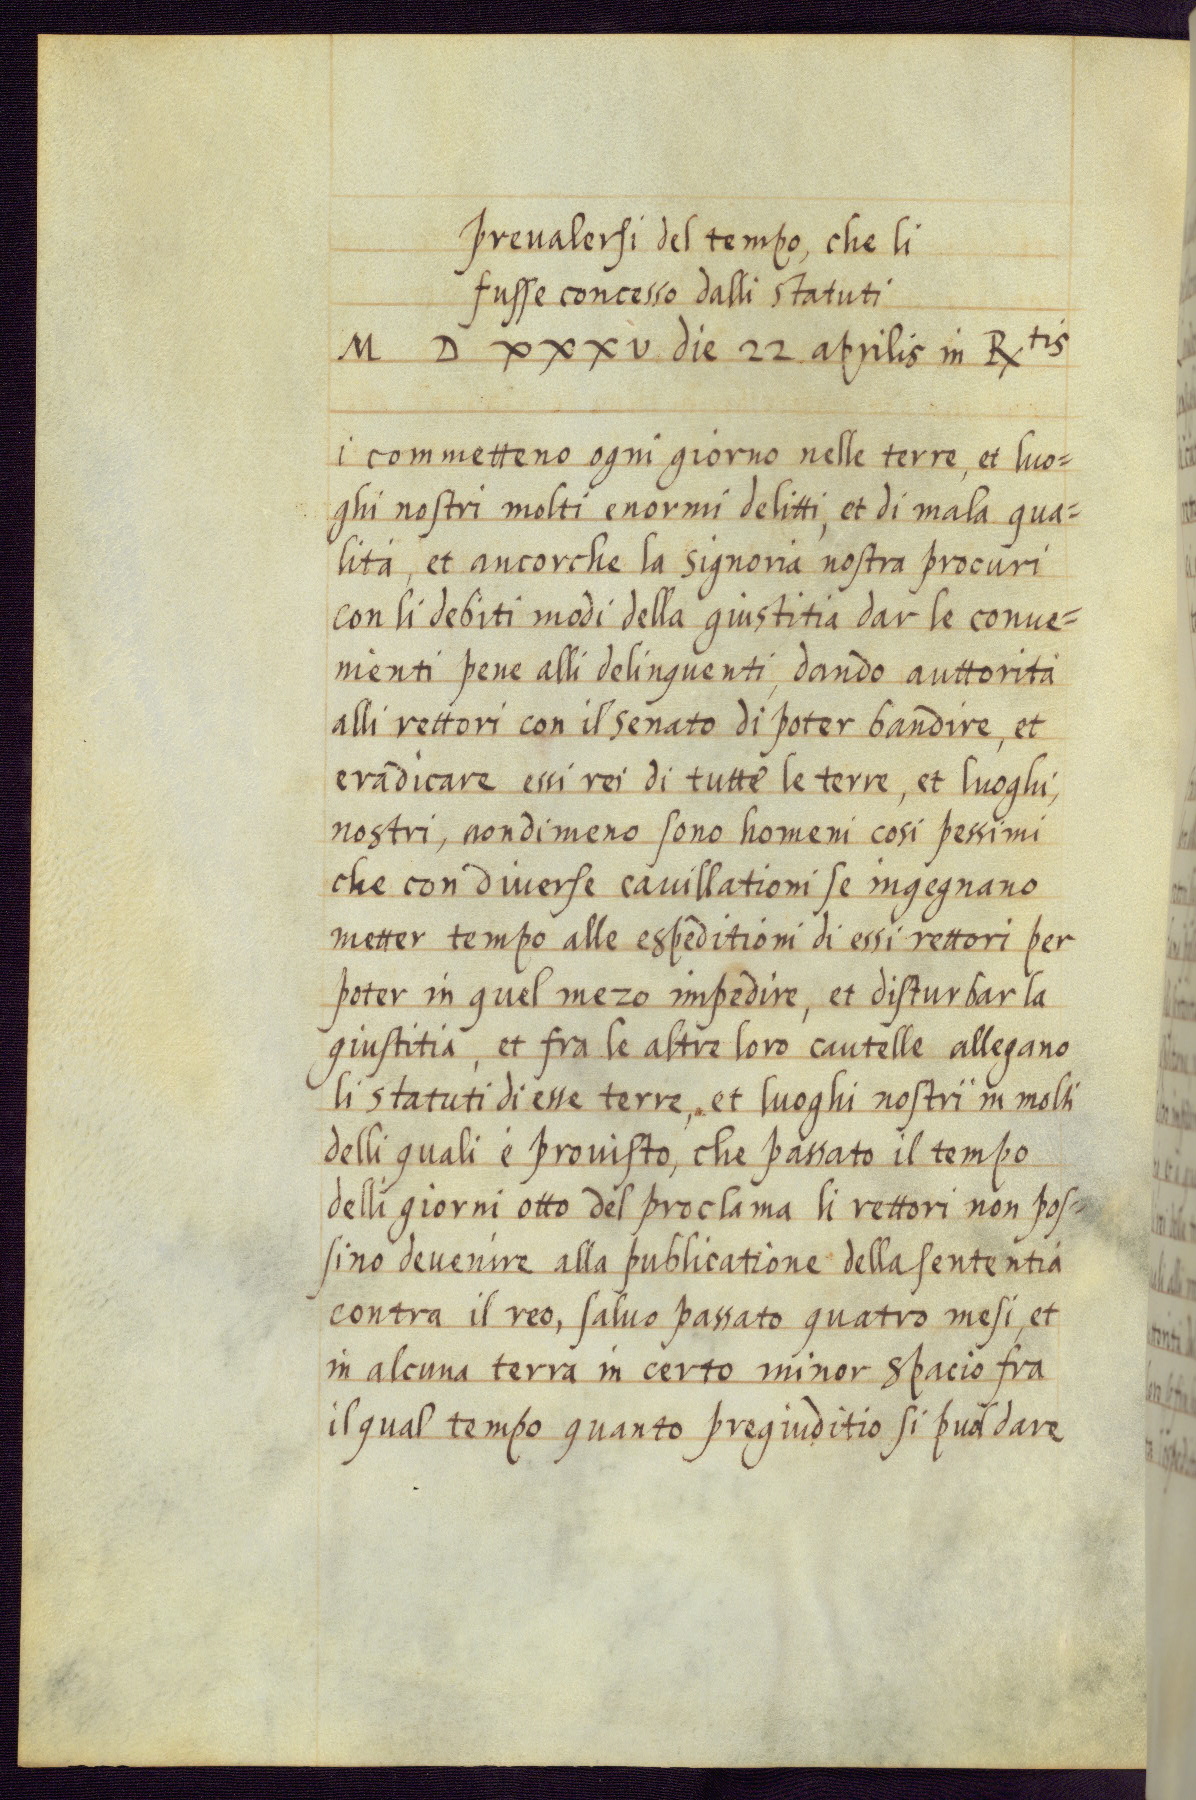 prevalersi del tempo, che li
fusse concesso dalli statuti
M D XXXV die 22 aprilis in Rtis
i commetteno ogni giorno nelle terre, et luo=
ghi nostri molti enormi delitti, et di mala qua=
lità, et ancorche la signoria nostra procuri
con li debiti modi della giustitia dar le conue=
nienti pene alli delinquenti, dando auttorità
alli rettori con il senato di poter bandire, et
eradicare essi rei di tutte le terre, et luoghi,
nostri, nondimeno sono homeni cosi pessimi
che con diverse cauillationi se ingegnano
metter tempo alle espeditioni di essi rettori per
poter in quel mezo impedire, et disturbar la
giustitia, et fra le altre loro cautelle allegano
li statuti di esse terre, et luoghi nostri in molti
delli quali é prouisto, che passato il tempo
delli giorni otto del proclama li rettori non pos-
sino deuenire alla publicatione della sententia
contra il reo, saluo passato quatro mesi, et
in alcuna terra in certo minor spacio fra
il qual tempo quanto pregiuditio si puol dare